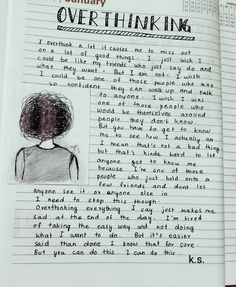 January
OVERTHINKING
I overthink a lot it causes me to miss out
on a lot of good things. I just wish I
could be like my friends who just say do and
what they want. But I am not. I wish
I could be one of those people who are
so confident they can walk up and talk
to anyone. I wish I was
one of those people who
would be themselves around
people they don't know.
But you have to get to know
me to see how I actually am
I mean that's not a bad thing
but that's kinda hard to let
anyone get to know me
because I'm one of those
people who just hold onto a
few friends and dont let
anyone see it or anyone else in
I need to stop this though.
Overthinking everything I say just makes me
sad at the end of the day. I'm tired
of taking the easy way and not doing
what I want to do. But it's easier
said than done I know that for sure
But you can do this I can do this.
k.s.